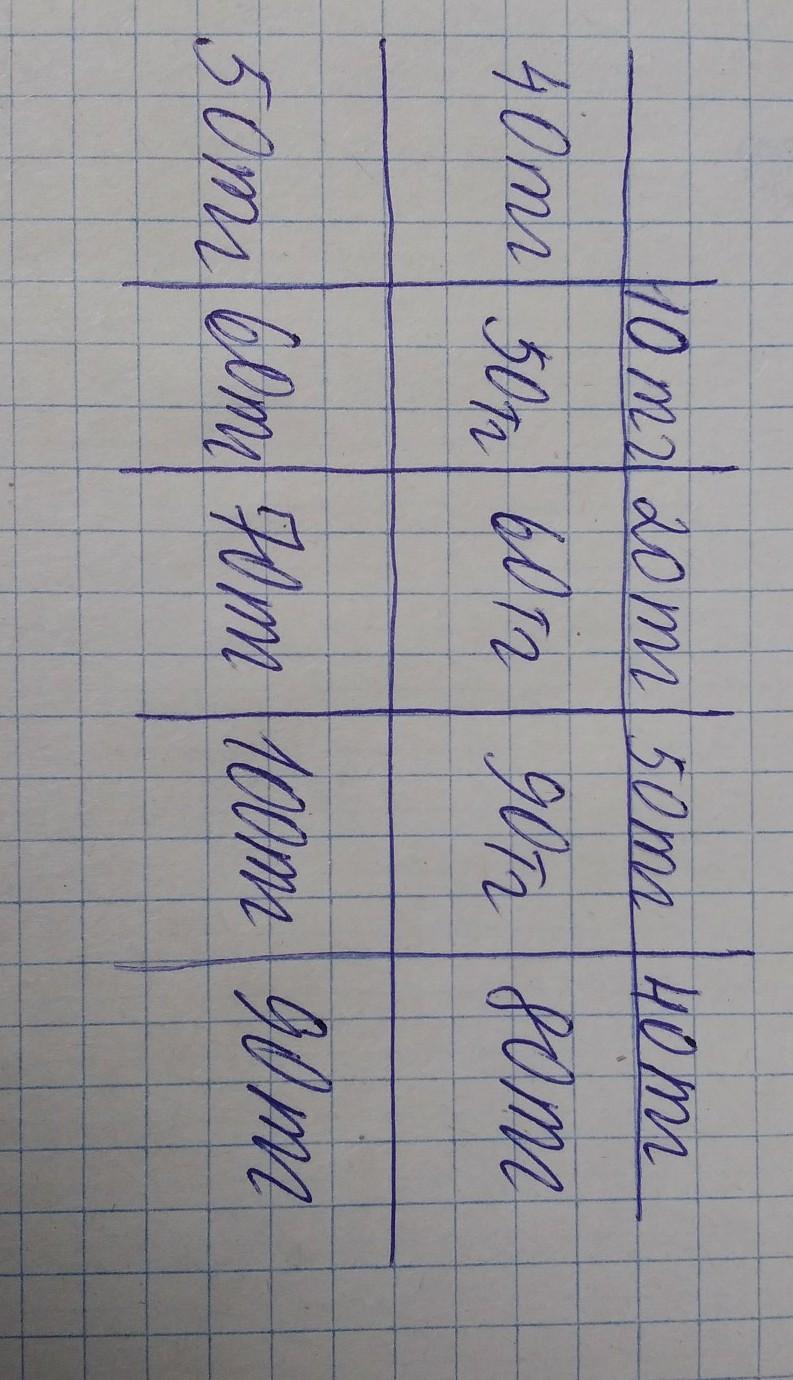 10тг 20тг 50тг 40тг
40тг 50тг 60тг 90тг 80тг
50тг 60тг 70тг 100тг 90тг